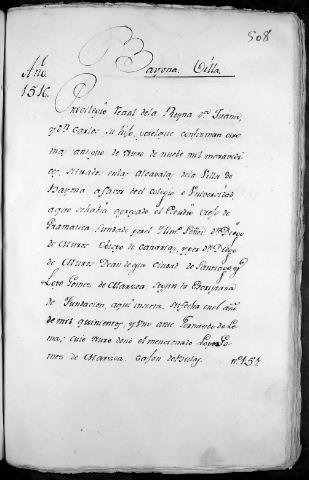 508
Bayona. Villa.
Año
1516.
Privilegio Real dela Reyna Dª Juana,
y Dn Carlos su hijo, por el que confirman otro
mas antiguo de Juro de nueve mil maravedi
ses, situados en las Alcavalas dela Villa de
Bayona, a favor de el colegio e Universidad,
a que se havia agregado el Estudio viejo de
Gramatica, fundado por el Illmo. Señor Dn Diego
de Muros Obispo de Canarias, y por Dn Diego
de Muros Dean de esta Ciudad de Santiago, y
Lope Gomez de Marzoa, segun la Escriptura
de Fundacion, aqui inserta, su fecha en el año
de mil quinientos, y uno ante Fernando de
cuio Juro donó el mencionado Lope Go
mes de Marzoa. Cajon de Bulas. nº 15.